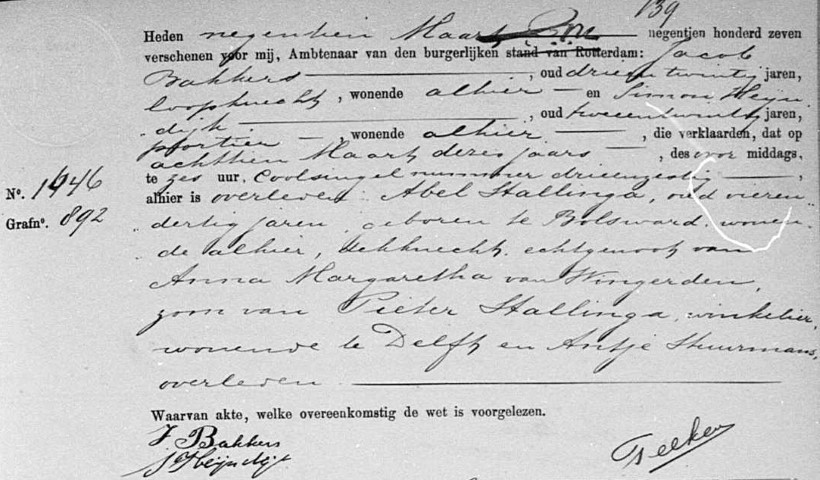 139
Heden negentien Maart negentien honderd zeven
verschenen voor mij, Ambtenaar van den burgerlijken stand van Rotterdam: Jacob
Bakkers, oud drieentwintig jaren,
loopknecht, wonende alhier en Simon Heijn-
dijk, oud tweeentwintig jaren,
portier, wonende alhier, die verklaarden, dat op
achttien Maart dezes jaars, des voor middags,
te zes uur, Coolsingel nummer drieenzestig,
N°. 1946
alhier is overleden: Abel Stallinga, oud vieren-
Grafn°. 892
dertig jaren, geboren te Bolsward, wonen-
de alhier, dekknecht, echtgenoot van
Anna Margaretha van Wingerden,
zoon van Pieter Stallinga, winkelier,
wonende te Delft en Antje Stuurmans,
overleden
Waarvan akte, welke overeenkomstig de wet is voorgelezen.
J Bakkers
S Heijndijk